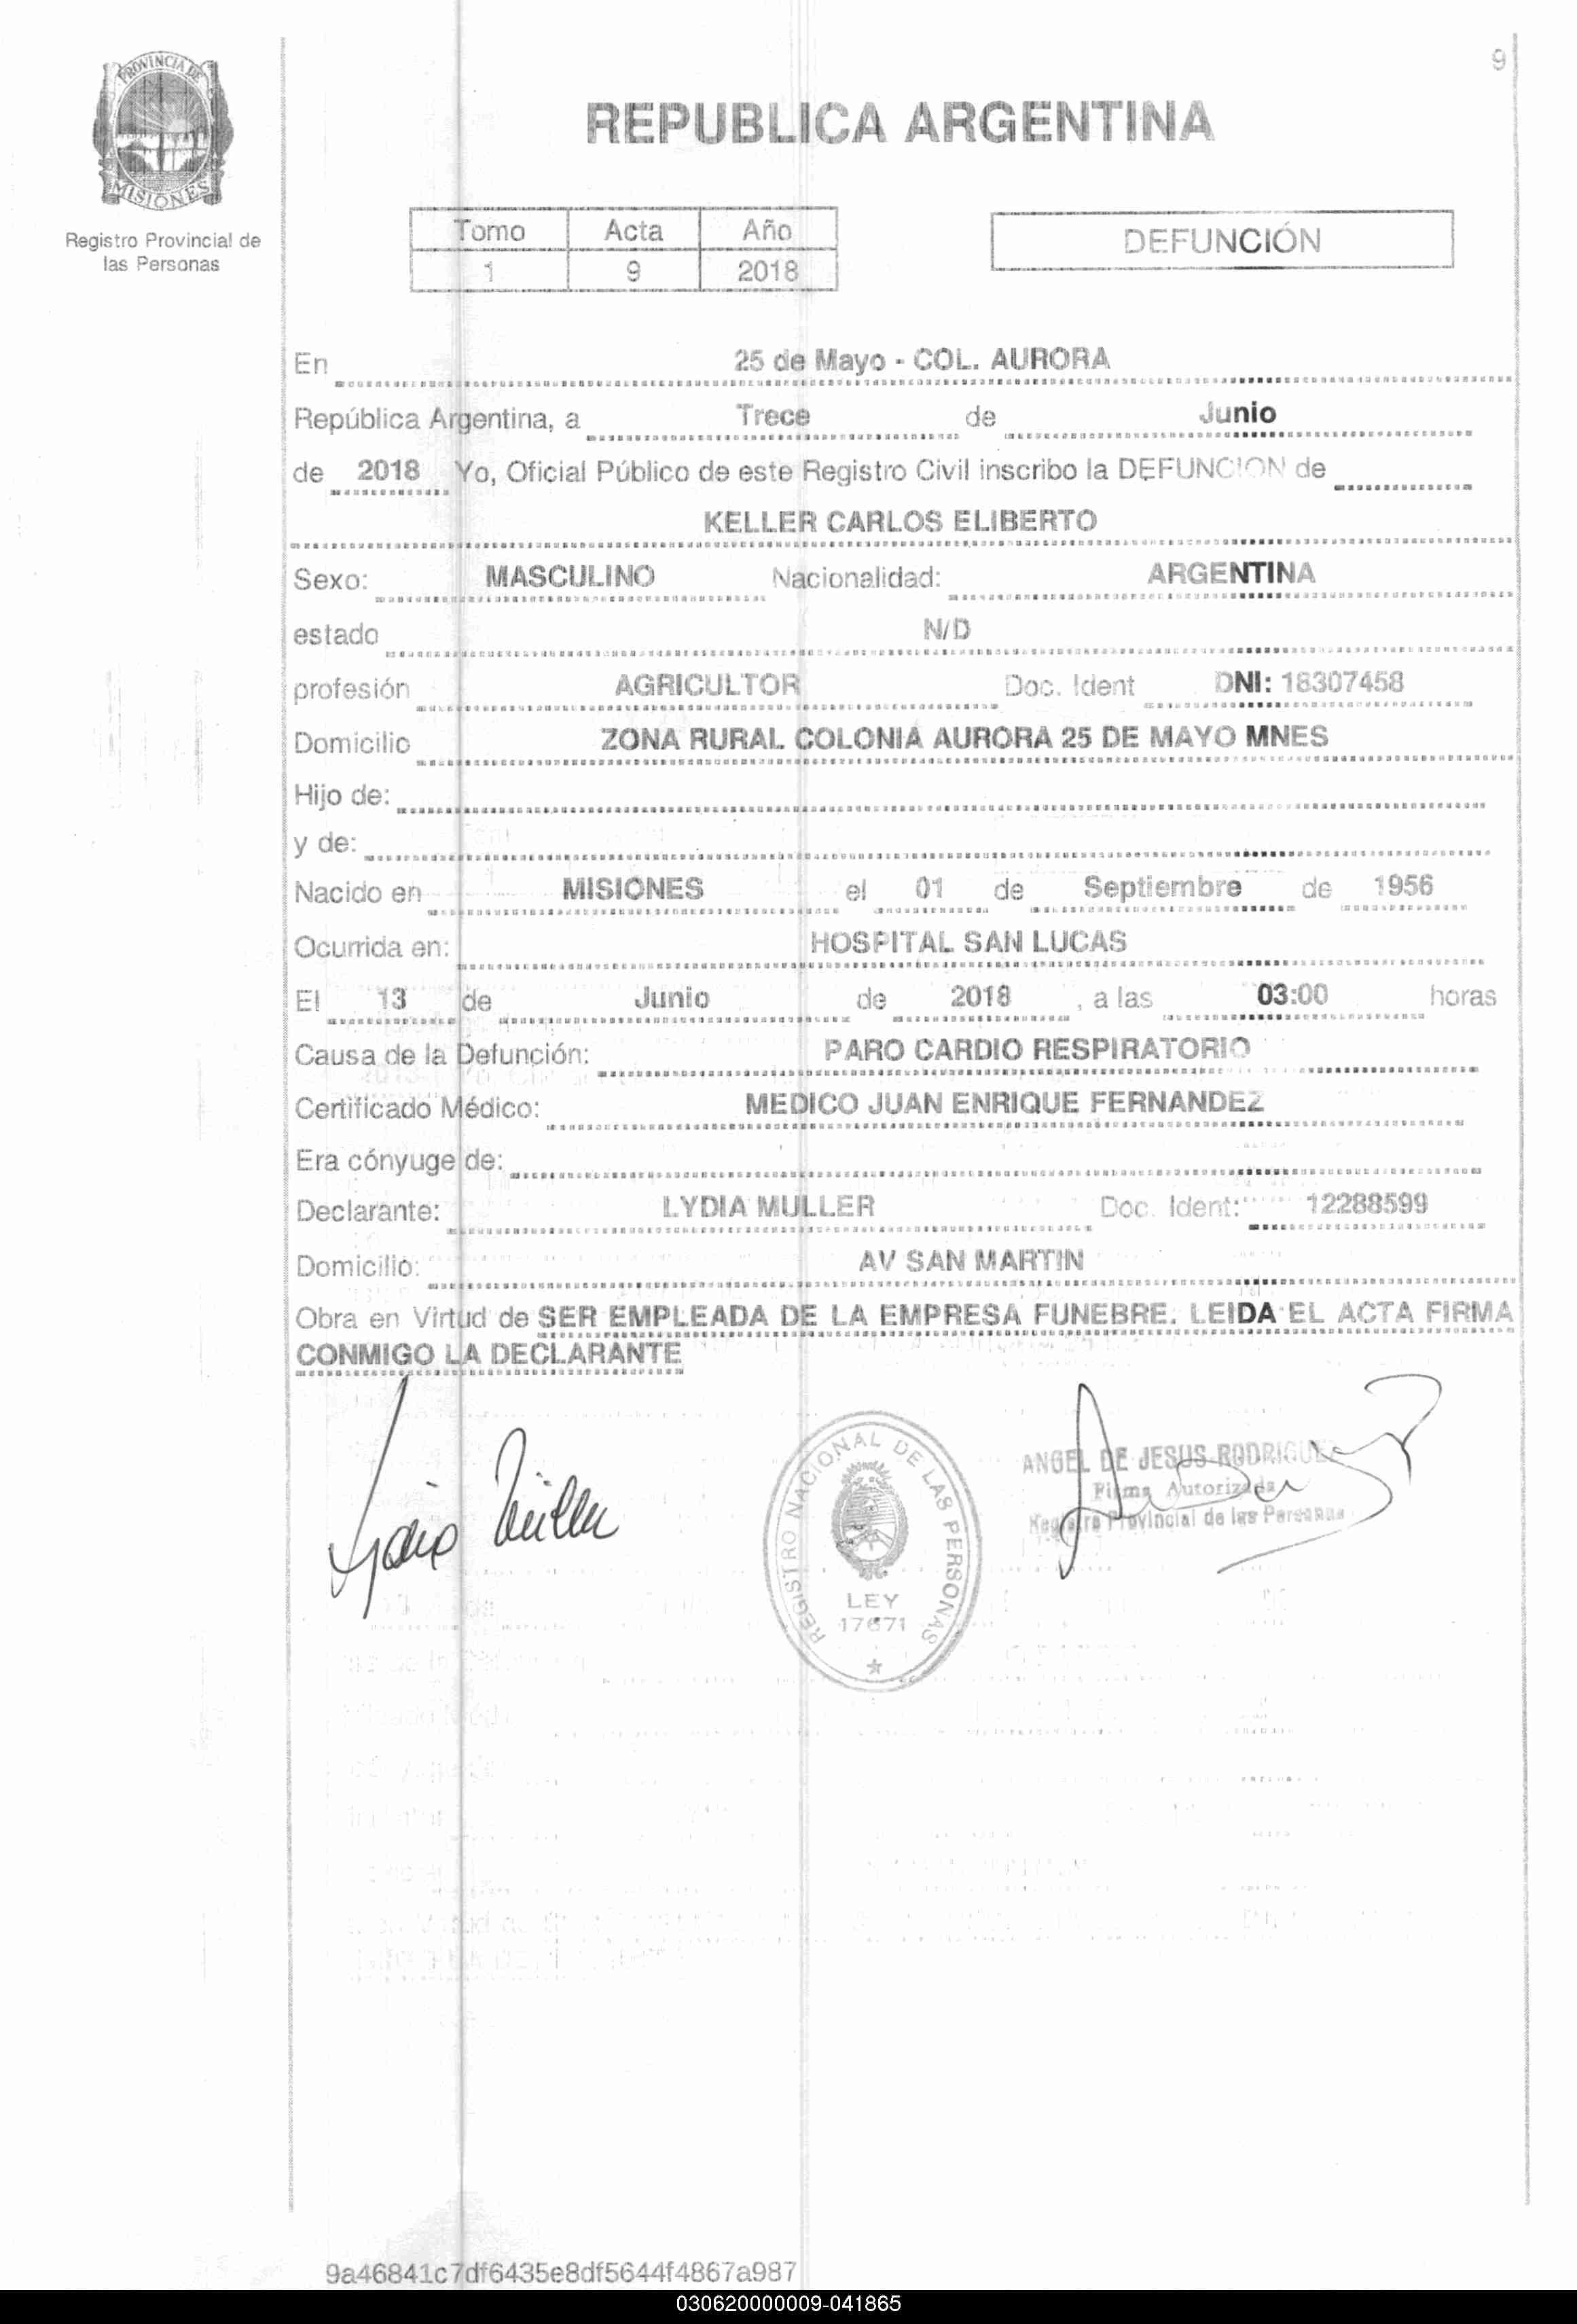 9
PROVINCIA DE
MISIONES
Registro Provincial de
las Personas
REPUBLICA ARGENTINA
Tomo Acta Año
1 9 2018
DEFUNCIÓN
En 25 de Mayo - COL. AURORA
República Argentina, a Trece de Junio
de 2018 Yo, Oficial Público de este Registro Civil inscribo la DEFUNCION de
KELLER CARLOS ELIBERTO
Sexo: MASCULINO Nacionalidad: ARGENTINA
estado N/D
profesión AGRICULTOR Doc. Ident DNI: 18307458
Domicilio ZONA RURAL COLONIA AURORA 25 DE MAYO MNES
Hijo de:
y de:
Nacido en MISIONES el 01 de Septiembre de 1956
Ocurrida en: HOSPITAL SAN LUCAS
El 13 de Junio de 2018 , a las 03:00 horas
Causa de la Defunción: PARO CARDIO RESPIRATORIO
Certificado Médico: MEDICO JUAN ENRIQUE FERNANDEZ
Era cónyuge de:
Declarante: LYDIA MULLER Doc. Ident: 12288599
Domicilio: AV SAN MARTIN
Obra en Virtud de SER EMPLEADA DE LA EMPRESA FUNEBRE. LEIDA EL ACTA FIRMA
CONMIGO LA DECLARANTE
REGISTRO NACIONAL DE LAS PERSONAS
LEY
17671
ANGEL DE JESUS RODRIGUEZ
Firma Autorizada
Registro Provincial de las Personas
9a46841c7df6435e8df5644f4867a987
030620000009-041865